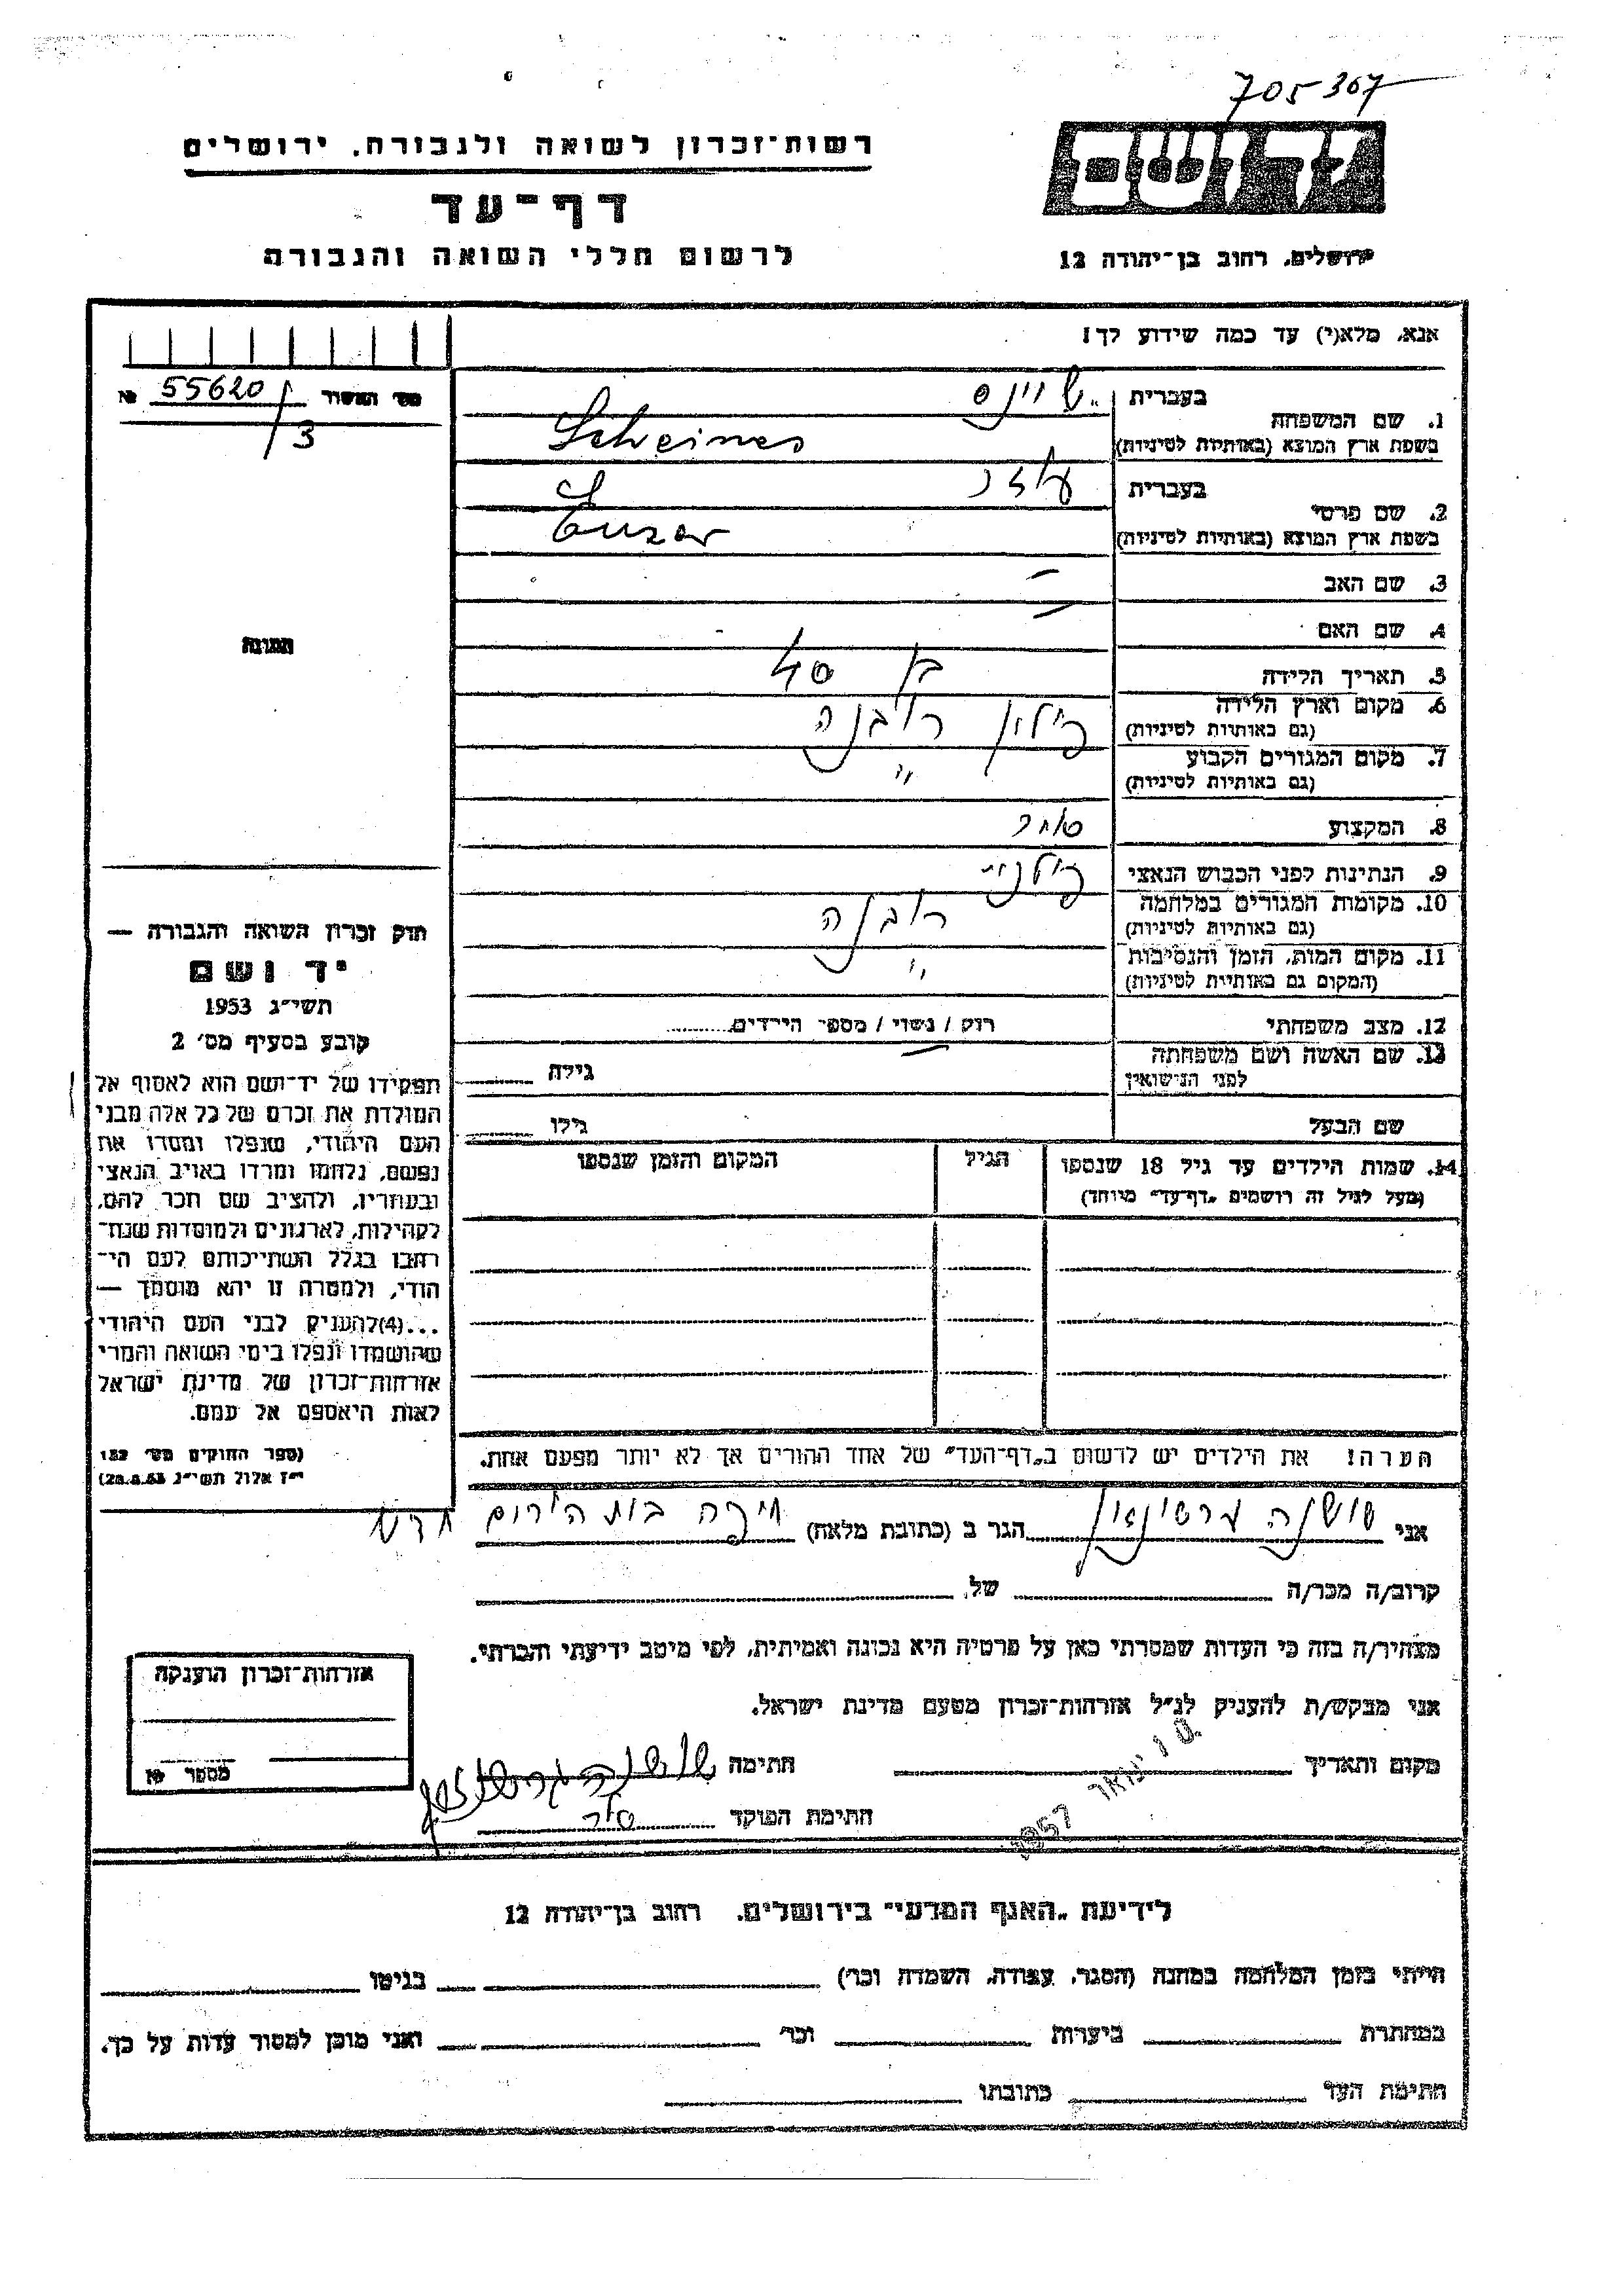 705367
רשות־זכרון לשואה ולגבורה, ירושלים
דף־עד
לרשום חללי השואה והגבורה
יד ושם
ירושלים, רחוב בן־יהודה 12
אנא, מלא(י) עד כמה שידוע לך!
מס' האשור 55620/3 №
1. שם המשפחה
בעברית
בשפת ארץ המוצא (באותיות לטיניות) Scheines
2. שם פרטי
בעברית
בשפת ארץ המוצא (באותיות לטיניות) Euzer
3. שם האב —
4. שם האם —
5. תאריך הלידה בן 40
6. מקום וארץ הלידה (גם באותיות לטיניות) פולין רובנה
7. מקום המגורים הקבוע (גם באותיות לטיניות) "
8. המקצוע סוחר
9. הנתינות לפני הכבוש הנאצי פולנית
10. מקומות המגורים במלחמה (גם באותיות לטיניות) רובנה
11. מקום המות, הזמן והנסיבות (המקום גם באותיות לטיניות) "
12. מצב משפחתי רוק / נשוי / מספר הילדים
13. שם האשה ושם משפחתה לפני הנישואין — גילה
שם הבעל גילו
14. שמות הילדים עד גיל 18 שנספו (מעל לגיל זה רושמים „דף־עד" מיוחד)
הגיל
המקום והזמן שנספו
הערה! את הילדים יש לרשום ב„דף־העד" של אחד ההורים אך לא יותר מפעם אחת.
התמונה
חוק זכרון השואה והגבורה —
יד ושם
תשי״ג 1953
קובע בסעיף מס' 2
תפקידו של יד־ושם הוא לאסוף אל
המולדת את זכרם של כל אלה מבני
העם היהודי, שנפלו ומסרו את
נפשם, נלחמו ומרדו באויב הנאצי
ובעוזריו, ולהציב שם וזכר להם,
לקהילות, לארגונים ולמוסדות שנח־
רבו בגלל השתייכותם לעם הי־
הודי, ולמטרה זו יהא מוסמך —
...(4) להעניק לבני העם היהודי
שהושמדו ונפלו בימי השואה והמרי
אזרחות־זכרון של מדינת ישראל
לאות היאספם אל עמם.
(ספר החוקים מס' 132
י״ז אלול תשי״ג 28.8.53)
אני שושנה הגר ב (כתובת מלאה) חיפה
קרוב/ה מכר/ה של
מצהיר/ה בזה כי העדות שמסרתי כאן על פרטיה היא נכונה ואמיתית, לפי מיטב ידיעתי והכרתי.
אני מבקש/ת להעניק לנ״ל אזרחות־זכרון מטעם מדינת ישראל.
מקום ותאריך ינואר 1957 חתימה שושנה
חתימת הפוקד
אזרחות־זכרון הוענקה
מספר №
לידיעת „האגף המדעי" בירושלים, רחוב בן־יהודה 12
הייתי בזמן המלחמה במחנה (הסגר, עבודה, השמדה וכו') בגיטו
במחתרת ביערות וכו' ואני מוכן למסור עדות על כך.
חתימת העד כתובתו